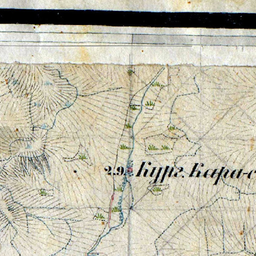 2.9. Кург. Кара-с